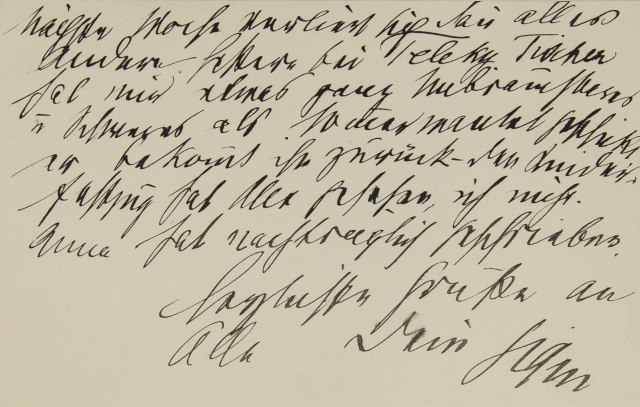 nächste Woche verliert sich das alles
andere. Gestern bei Teleky. Tischer
hat mir etwas ganz Unbrauchbares
u Schweres als Sommermantel geschickt
er bekommt ihn zurück - den
hat Alex gesehen, ich nicht.
Anna hat nachträglich geschrieben.
Herzlichste Grüße an
Alle Dein